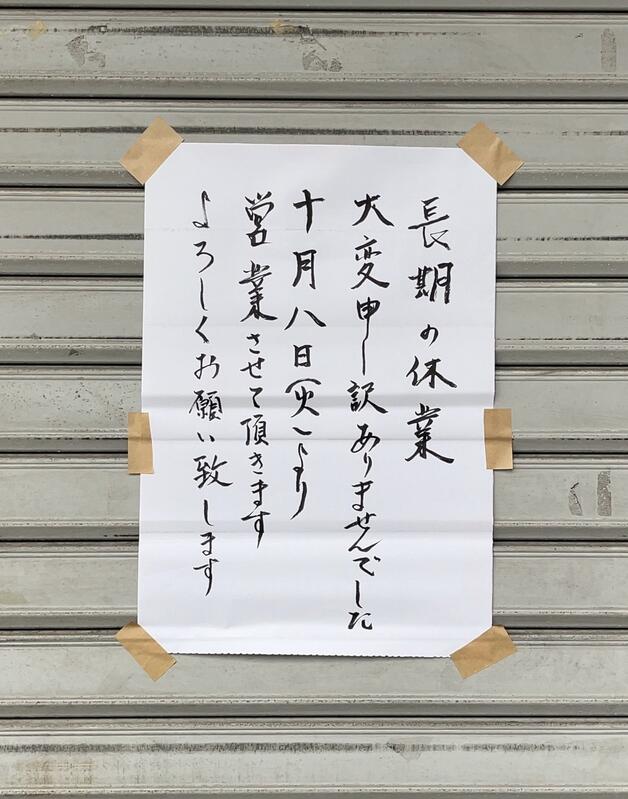 長期の休業
大変申し訳ありませんでした
十月八日(火)より
営業させて頂きます
よろしくお願い致します